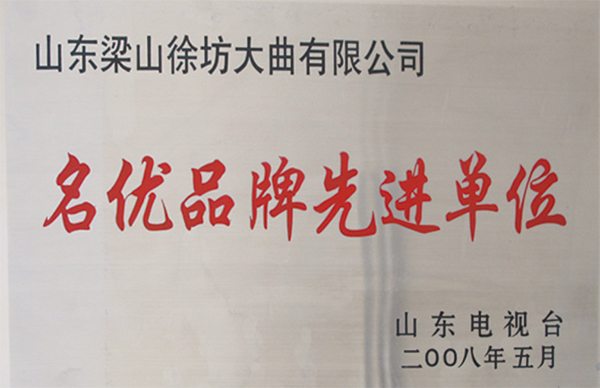 山东梁山徐坊大曲有限公司
名优品牌先进单位
山东电视台
二〇〇八年五月